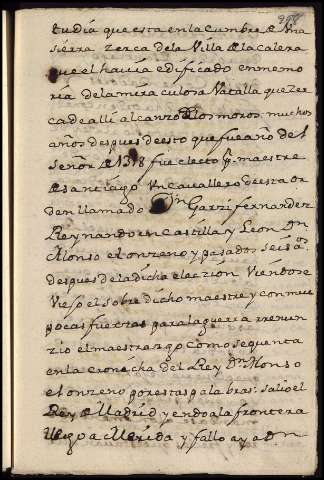 tudia que esta en la Cumbre de Vna
sierra zerca de la Villa de la calera
que el havia edificado en memo
ria de la miraculosa Vatalla que zer
ca de alli alcanzo de los moros. muchos
años despues de esto que fue año del
señor de 1318 fue electo pr. maestre
de santiago Vn cavallero de esta or
den llamado Dn Garzi fernandez
Reynando en Castilla y Leon Dn
Alonso el onzeno y pasados seis aos
despues de la dicha eleczion Viendose
Viejo el sobre dicho maestre y con mui
pocas fuerzas para la guerra rrenun
zio el maestrazgo como se quenta
en la cronicha del Rey Dn Alonso
el onzeno por estas palabras: salio el
Rey de Madrid y endo a la frontera
llego a Merida y fallo ay a Dn